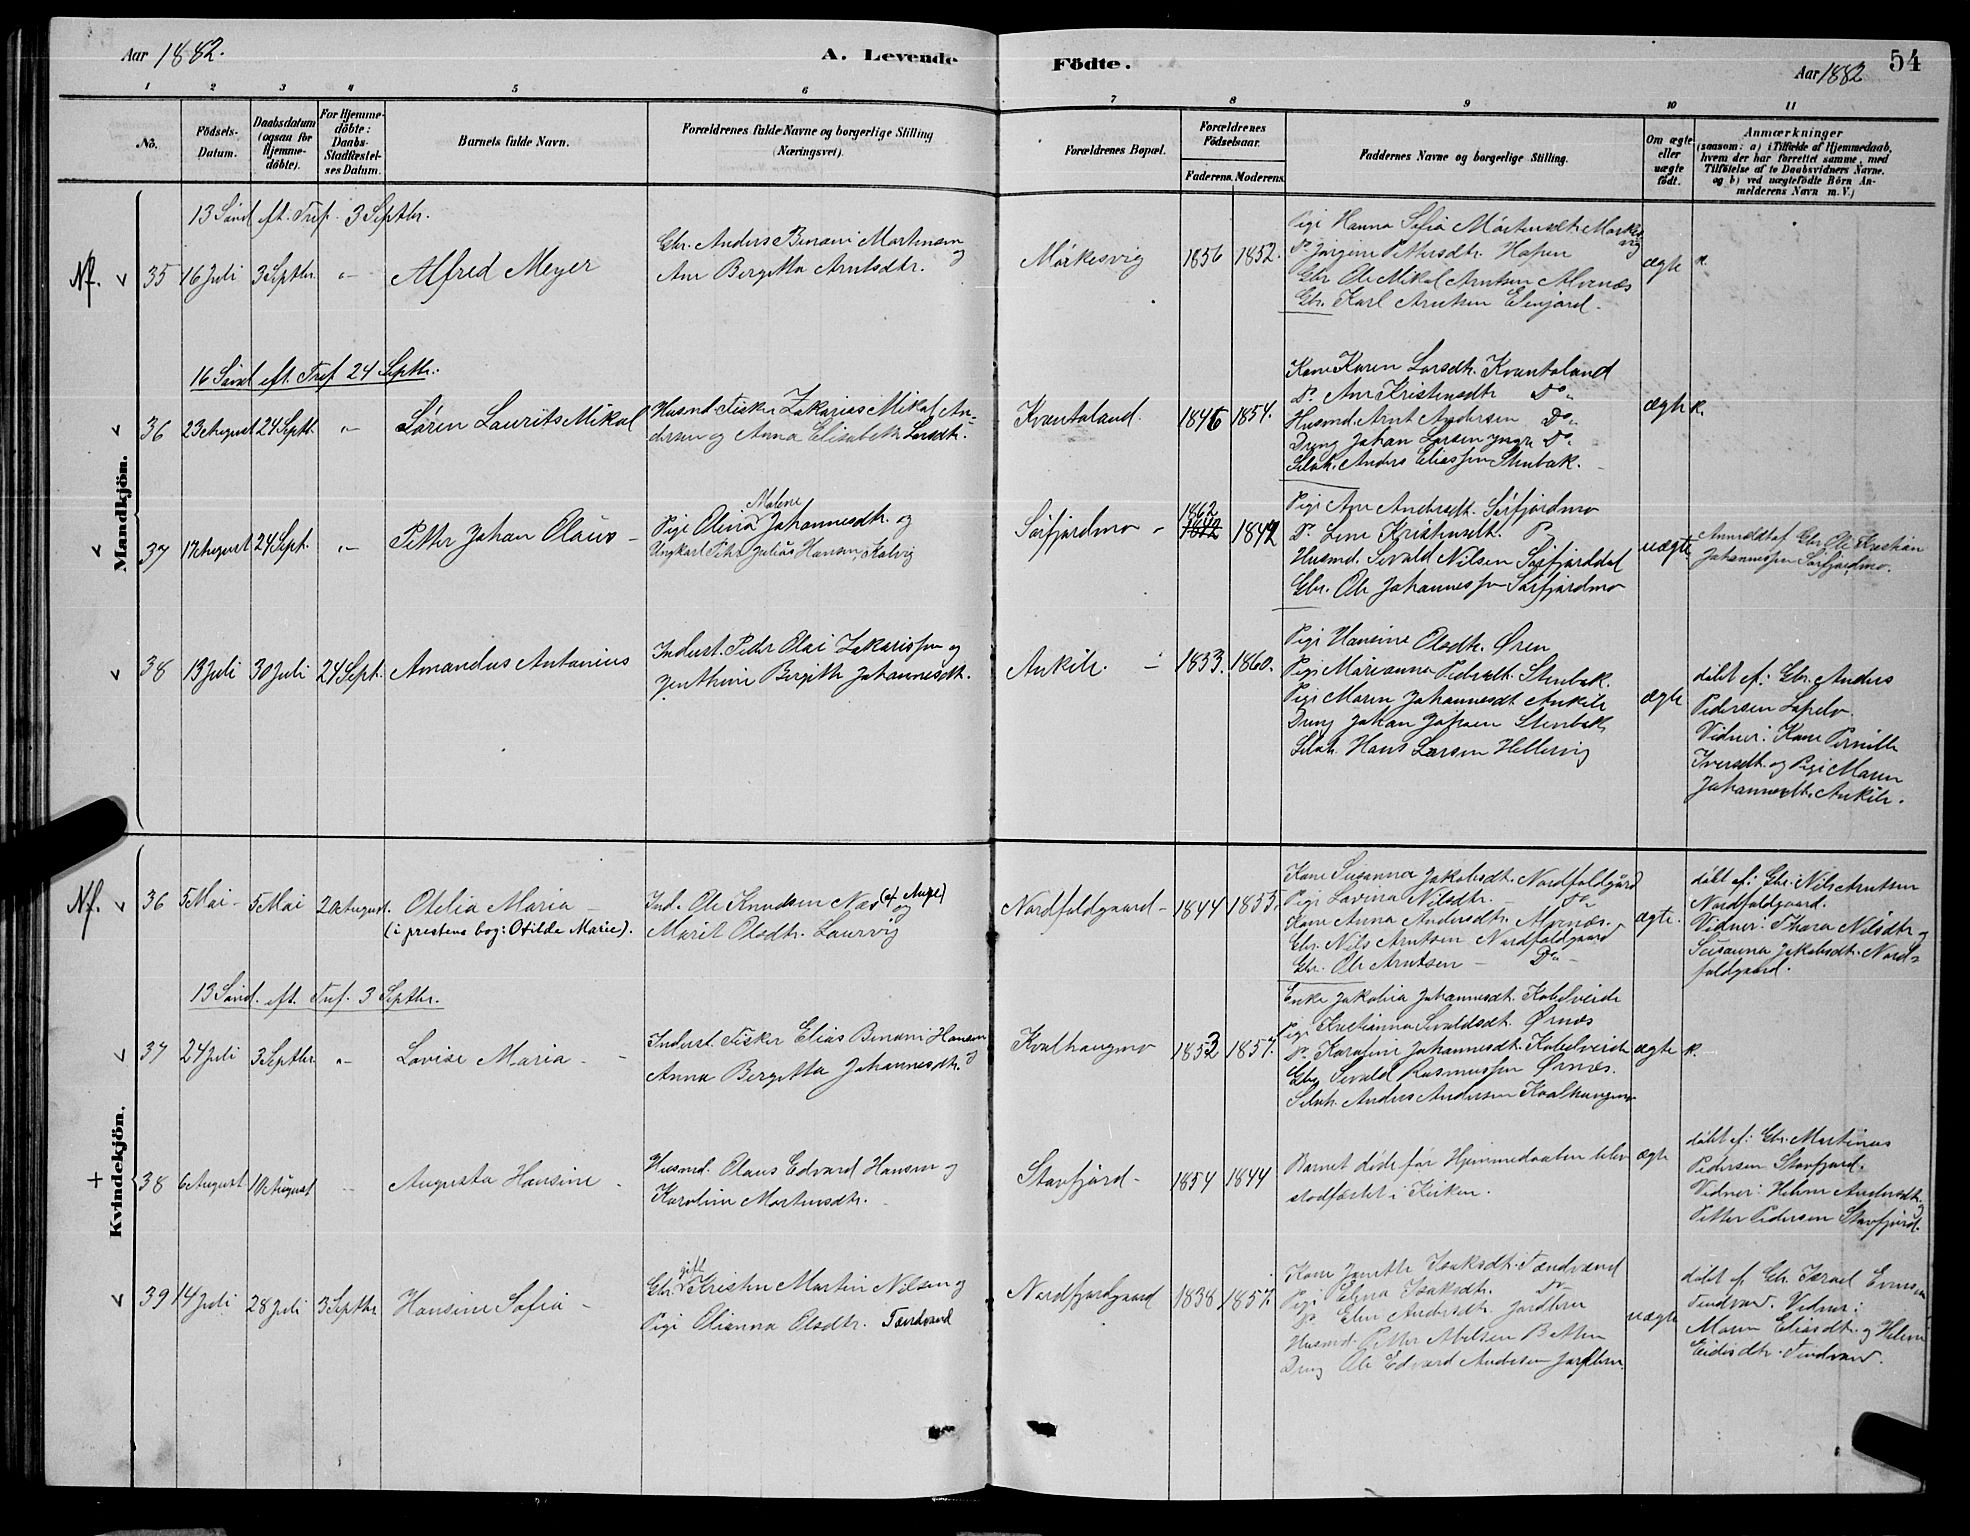 Aar 1882.
A. Levende Födte.
Aar 1882
54
1 2 3 4 5 6 7 8 9 10 11
No.
Födsels-Datum.
Daabsdatum (ogsaa for Hjemme-döbte).
For Hjemme-döbte: Daabs-Stadfæstel-ses Datum.
Barnets fulde Navn.
Forældrenes fulde Navne og borgerlige Stilling (Næringsvei).
Forældrenes Bopæl.
Forældrenes Födselsaar.
Faderens. Moderens.
Faddernes Navne og borgerlige Stilling.
Om ægte eller uægte födt.
Anmærkninger
(saasom: a) i Tilfælde af Hjemmedaab,
hvem der har forrettet samme, med
Tilföielse af to Daabsvidners Navne.
og b) ved uægtefödte Börn An-
melderens Navn m. V.)
Mandkjön.
13 Sønd. eft. Tref. 3 Septbr.
Nf. v 35 16 Juli 3 Septbr. " Alfred Meyer
Gbr. Anders Benoni Mortensen og
Ane Bergitta Arntsdtr.
Mørkesvig 1856 1852.
Pige Hanna Sofia Mortensdtr. Mørkesvig
D. Jørgine Pettersdtr. Hopen
Gbr. Ole Mikal Arntsen Alvenæs
Gbr. Karl Arntsen Elvejord.
ægte k.
16 Sønd. eft. Tref. 24 Septbr.
v 36 23 August 24 Septbr. " Søren Laurits Mikal
Husmd. Fisker Zakarias Mikal An-
dersen og Anna Elisabeth Larsdtr.
Kvantoland. 1846 1854.
Kone Karen Larsdtr. Kvantoland
D. Ane Kristensdtr. Do.
Husmd. Arnt Andersen Do.
Dreng Johan Larsen yngre Do.
Selvh. Anders Eliassen Stenbak.
ægte k.
v 37 17 August 24 Sept. " Petter Johan Olaus
Pige Olina Malene Johannesdtr. og
Ungkarl Peter Julius Hansen Kalvig
Sørfjordmo 1862 1842 1842
Pige Ane Andersdtr. Sørfjordmo
D. Lene Kristensdtr. D.
Husmd. Sivald Nilsen Sørfjorddal
Gbr. Ole Johannessen Sørfjordmo
uægte
Anmeldt af Gbr. Ole Kristian
Johannessen Sørfjordmo.
v 38 13 Juli 30 Juli 24 Sept. Amandus Antonius
Inderst. Peder Olai Zakarissen og
Jenthine Bergitte Johannesdtr.
Ankile. 1833. 1860.
Pige Hansine Olsdtr. Øren
Pige Marianna Pedersdtr. Stenbak.
Pige Maren Johannesdtr. Ankile
Dreng Johan Johnsen Stenbak
Selvh. Hans Larsen Hellervig
ægte
döbt af: Gbr. Anders
Pedersen Lapelv.
Vidner: Kone Pernille
Iversdtr. og Pige Maren
Johannesdtr. Ankile.
Kvindekjön.
Nf. v 36 5 Mai 5 Mai 20 August. Otelia Maria
(i prestens bog: Otilde Marie).
Ind. Ole Knudsen Næs (af Aure) og
Marit Olsdtr. Laurvig
Nordfoldgaard 1844 1855.
Kone Susanna Jakobsdtr. Nordfoldgård
Pige Lovina Nilsdtr. Do.
Kone Anna Andersdtr. Alvenæs.
Gbr. Nils Arntsen Nordfoldgaard
Gbr. Ole Arntsen Do.
ægte.
döbt af: Gbr. Nils Arntsen
Nordfoldgaard.
Vidner: Thora Nilsdtr. og
Susanna Jakobsdtr. Nord-
foldgaard.
13 Sønd. eft. Tref. 3 Septbr.
v 37 24 Juli 3 Septbr. " Lovise Maria
Inderst. Fisker Elias Benoni Hansen og
Anna Bergitta Johannesdtr.
Kvalhaugmo 1853 1857.
Enke Jakobia Johannesdtr. Kobelveide
Pige Kristianna Sivaldsdtr. Ørnæs
D. Karoline Johannesdtr. Kobelveide
Gbr. Sivald Rasmussen Ørnæs.
Selvh. Anders Andersen Kvalhaugmo
ægte k.
+ 38 6 August 10 August Augusta Hansine
Husmd. Olaus Edvard Hansen og
Karoline Mortensdtr.
Stavfjord 1854 1844
Barnet døde før Hjemmedaaben blev
stadfæstet i Kirken.
ægte
döbt af: Gbr. Martinus
Pedersen Stavfjord.
Vidner: Helene Andersdtr. og
Petter Pedersen Stavfjord.
v 39 14 Juli 28 Juli 3 Septbr. Hansine Sofia
Gbr. gift Kristen Martin Nilsen og
Pige Olianna Olsdtr. Tendvand
Nordfjordgaard 1838 1857.
Kone Janette Isaksdtr. Tendvand
Pige Elena Isaksdtr. Do
D. Elen Andersdtr. Jordbru
Husmd. Petter Abelsen Botten
Dreng Ole Edvard Andersen Jordbru
uægte
döbt af Gbr. Israel Evensen
Tendvand. Vidner:
Maren Eliasdtr. og Helene
Eidisdtr. Tendvand.